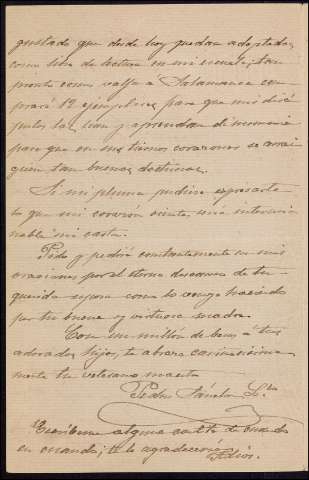 gustado que desde hoy quedan adoptadas
como libro de lectura en mi escuela, tan
pronto como vaya a Salamanca com
praré 12 ejemplares para que mis discí
pulos las lean y aprendan de memoria
para que en sus tiernos corazones se arrai
guen tan buenas doctrinas.
Si mi pluma pudiera expresarte
lo que mi corazón siente, sería intermi
nable mi carta.
Pido y pediré constantemente en mis
oraciones por el eterno descanso de tu
querida esposa como lo vengo haciendo
por tu buena y virtuosa madre.
Con un millón de besos a tus
adorados hijos, te abraza cariñosísima
mente tu veterano maestro
Pedro
Escribeme alguna cartita de cuando
en cuando; te lo agradeceré. Adiós.